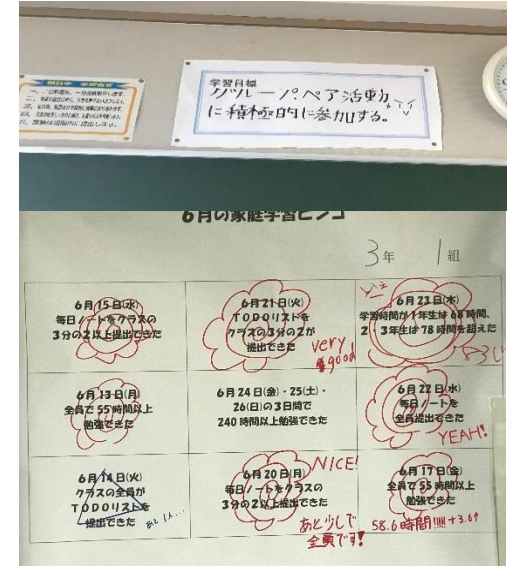 学習目標
グループ・ペア活動
に積極的に参加する。
6月の家庭学習ビンゴ
3年 1組
6月15日(水)
毎日ノートをクラスの
3分の2以上提出できた
6月21日(火)
TODOリストを
クラスの3分の2が
提出できた
very
good
6月23日(木)
学習時間が1年生は68時間、
2・3年生は78時間を超えた
6月13日(月)
全員で55時間以上
勉強できた
6月24日(金)・25(土)・
26(日)の3日間で
240時間以上勉強できた
6月22日(水)
毎日ノートを
全員提出できた
YEAH!
6月14日(火)
クラスの全員が
TODOリストを
提出できた
6月20日(月)
毎日ノートをクラスの
3分の2以上提出できた
NICE!
あと少しで
全員です!
6月17日(金)
全員で55時間以上
勉強できた
58.6時間!!!! +3.6↑